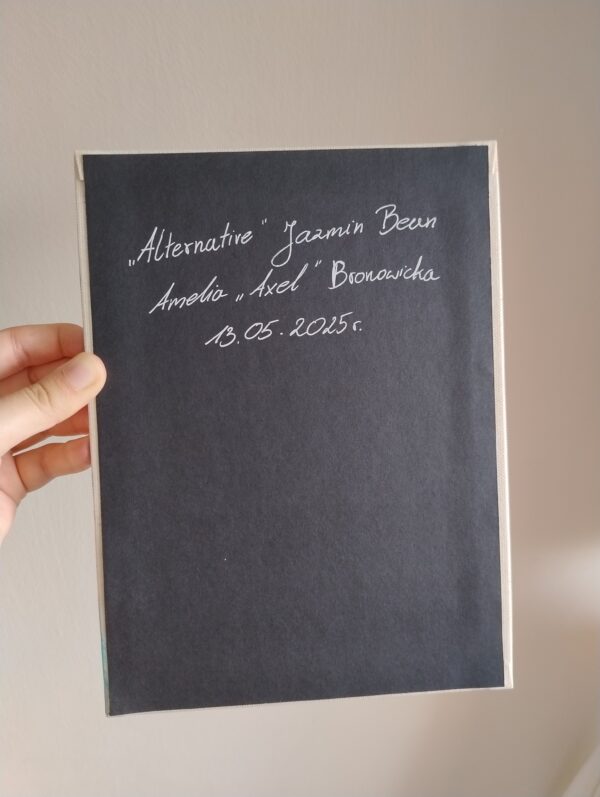 „Alternative" Jazmin Bean
Amelia „Axel" Bronowicka
13.05.2025r.